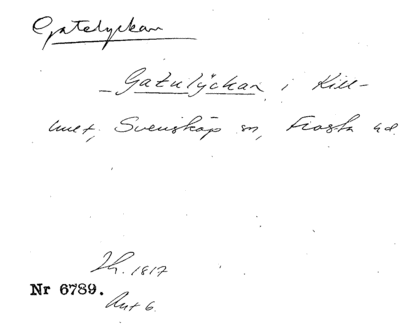 Gatelyckan
_Gatulÿckan i Kill-
hult, Svensköp sn, Frosta hd.
Th. 1817
Nr 6789.
Akt 6.